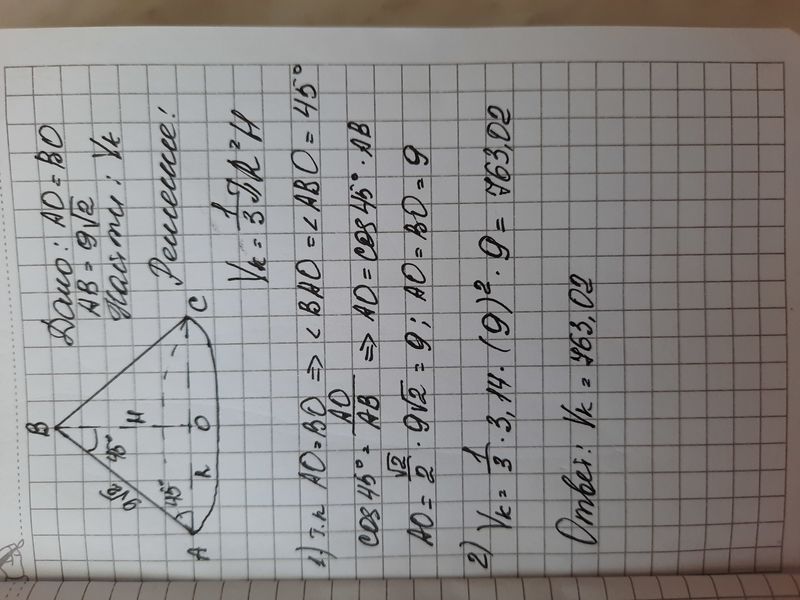 Дано: AO = BO
AB = 9√2
Найти: Vк
Решение:
B
9√2
45°
H
45°
A
R
O
C
Vк = 1/3 πR²H
1) т.к AO = BO ⇒ ∠BAO = ∠ABO = 45°
cos45° = AO/AB ⇒ AO = cos45° · AB
AO = √2/2 · 9√2 = 9; AO = BO = 9
2) Vк = 1/3 · 3,14 · (9)² · 9 = 763,02
Ответ: Vк = 763,02